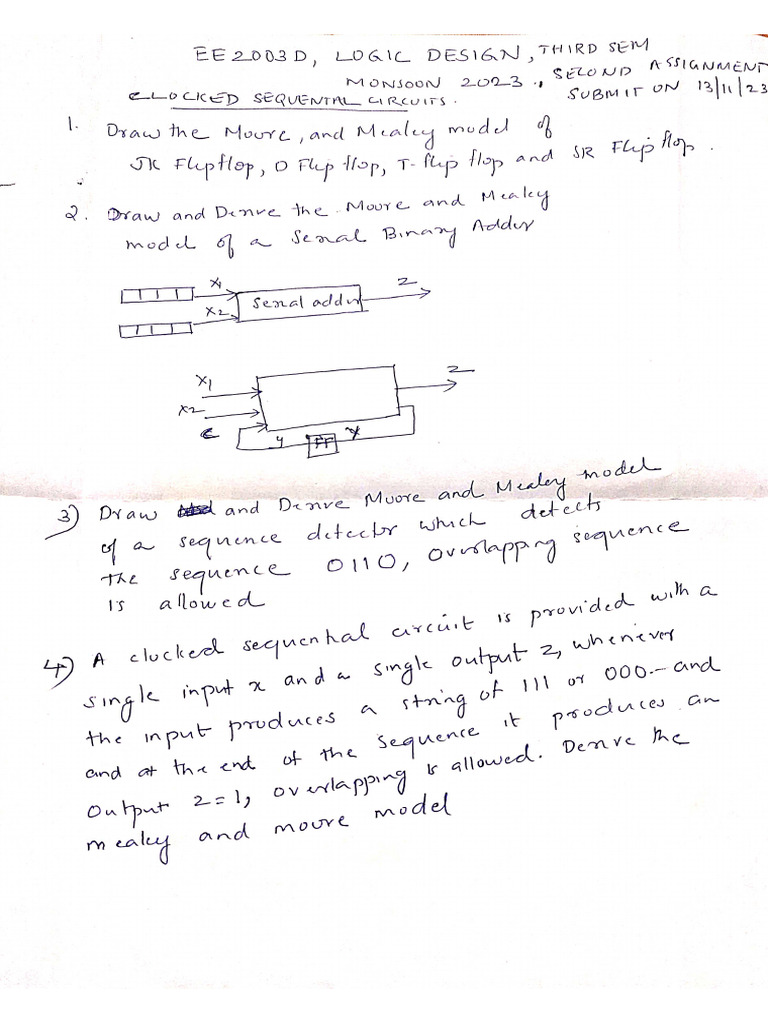 EE2003D, LOGIC DESIGN, THIRD SEM
MONSOON 2023, SECOND ASSIGNMENT
CLOCKED SEQUENTAL CIRCUITS. SUBMIT ON 13/11/23
1. Draw the Moore, and Mealey model of
JK Flipflop, D Flip flop, T-flip flop and SR Flip flop.
2. Draw and Derive the Moore and Mealey
model of a Serial Binary Adder
X1 Z
Serial adder
X2
X1 Z
X2
C y FF Y
3) Draw and Derive Moore and Mealey model
of a sequence detector which detects
the sequence 0110, overlapping sequence
is allowed
4) A clocked sequential circuit is provided with a
single input x and a single output z, whenever
the input produces a string of 111 or 000.- and
and at the end of the sequence it produces an
output z=1, overlapping is allowed. Derive the
mealey and moore model